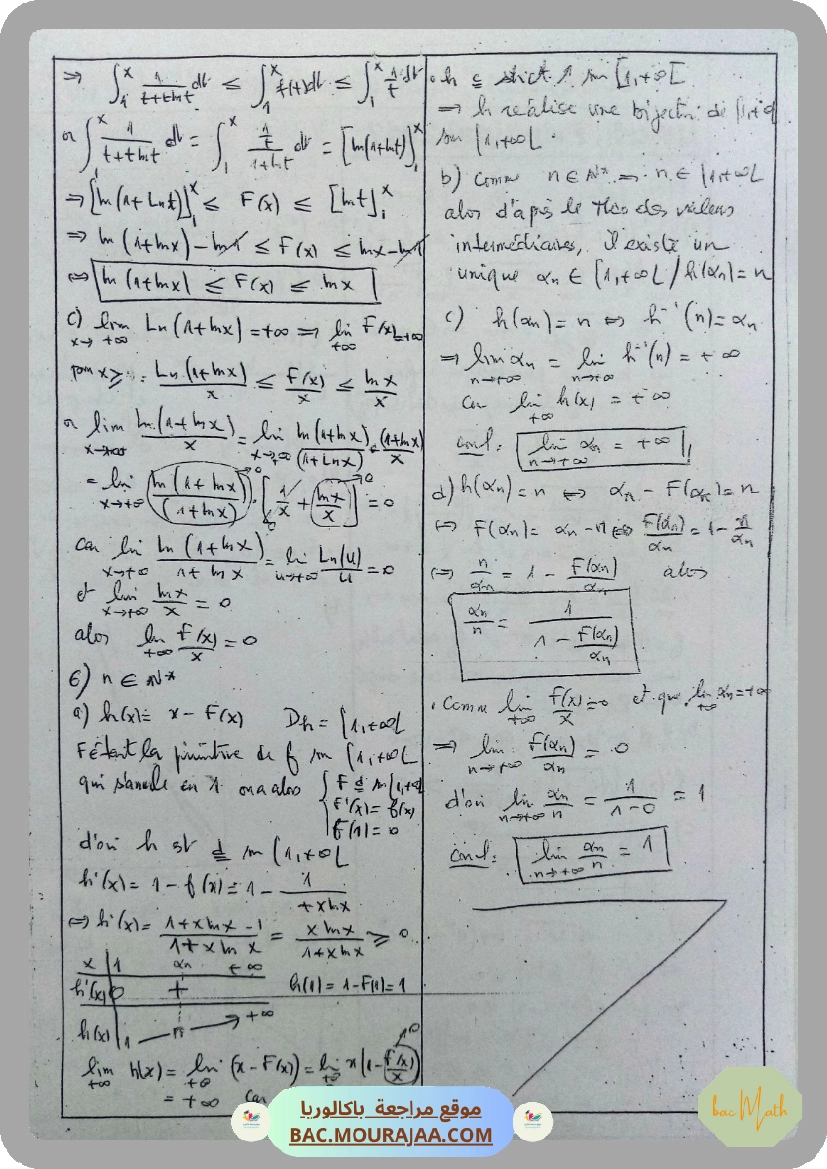 ⇒ ∫₁ˣ 1/(t+t ln t) dt ≤ ∫₁ˣ f(t)dt ≤ ∫₁ˣ 1/t dt
or ∫₁ˣ 1/(t+t ln t) dt = ∫₁ˣ (1/t)/(1+ln t) dt = [ln(1+ln t)]₁ˣ
⇒ [ln(1+Ln t)]₁ˣ ≤ F(x) ≤ [ln t]₁ˣ
⇒ ln(1+ln x) - ln 1 ≤ F(x) ≤ ln x - ln 1
⇔ ln(1+ln x) ≤ F(x) ≤ ln x
c) lim x→+∞ Ln(1+ln x) = +∞ ⇒ lim +∞ F(x) = +∞
pour x ≥ : Ln(1+ln x)/x ≤ F(x)/x ≤ ln x/x
or lim x→+∞ ln(1+ln x)/x = lim x→+∞ ln(1+ln x)/(1+Ln x) · (1+ln x)/x
= lim x→+∞ (ln(1+ln x)/(1+ln x))→0 · [1/x + (ln x/x)→0] = 0
car lim x→+∞ ln(1+ln x)/(1+ln x) = lim u→+∞ Ln(u)/u = 0
et lim x→+∞ ln x/x = 0
alors lim +∞ F(x)/x = 0
6) n ∈ ℕ*
a) h(x) = x - F(x) Dh = [1,+∞[
F étant la primitive de f sur [1,+∞[
qui s'annule en 1 on a alors { F d sur [1,+∞[
F'(x) = f(x)
F(1) = 0
d'où h est d sur [1,+∞[
h'(x) = 1 - f(x) = 1 - 1/(1+x ln x)
⇔ h'(x) = (1+x ln x - 1)/(1+x ln x) = x ln x/(1+x ln x) ≥ 0
x | 1 αn +∞
h'(x) 0 + h(1) = 1-F(1) = 1
h(x) | 1 n +∞
lim +∞ h(x) = lim +∞ (x - F(x)) = lim +∞ x(1 - (F(x)/x)→0)
= +∞ car
• h c strict ↗ sur [1,+∞[
⇒ h réalise une bijection de [1,+∞[
sur [1,+∞[.
b) Comme n ∈ ℕ* ⇒ n ∈ [1,+∞[
alors d'après le théo des valeurs
intermédiaires, il existe un
unique αn ∈ [1,+∞[ / h(αn) = n
c) h(αn) = n ⇔ h⁻¹(n) = αn
⇒ lim n→+∞ αn = lim n→+∞ h⁻¹(n) = +∞
car lim +∞ h(x) = +∞
concl: lim n→+∞ αn = +∞
d) h(αn) = n ⇔ αn - F(αn) = n
⇔ F(αn) = αn - n ⇔ F(αn)/αn = 1 - n/αn
⇔ n/αn = 1 - F(αn)/αn alors
αn/n = 1/(1 - F(αn)/αn)
• Comme lim +∞ F(x)/x = 0 et que lim +∞ αn = +∞
⇒ lim n→+∞ F(αn)/αn = 0
d'où lim n→+∞ αn/n = 1/(1-0) = 1
concl: lim n→+∞ αn/n = 1
موقع مراجعة باكالوريا
BAC.MOURAJAA.COM
bac Math